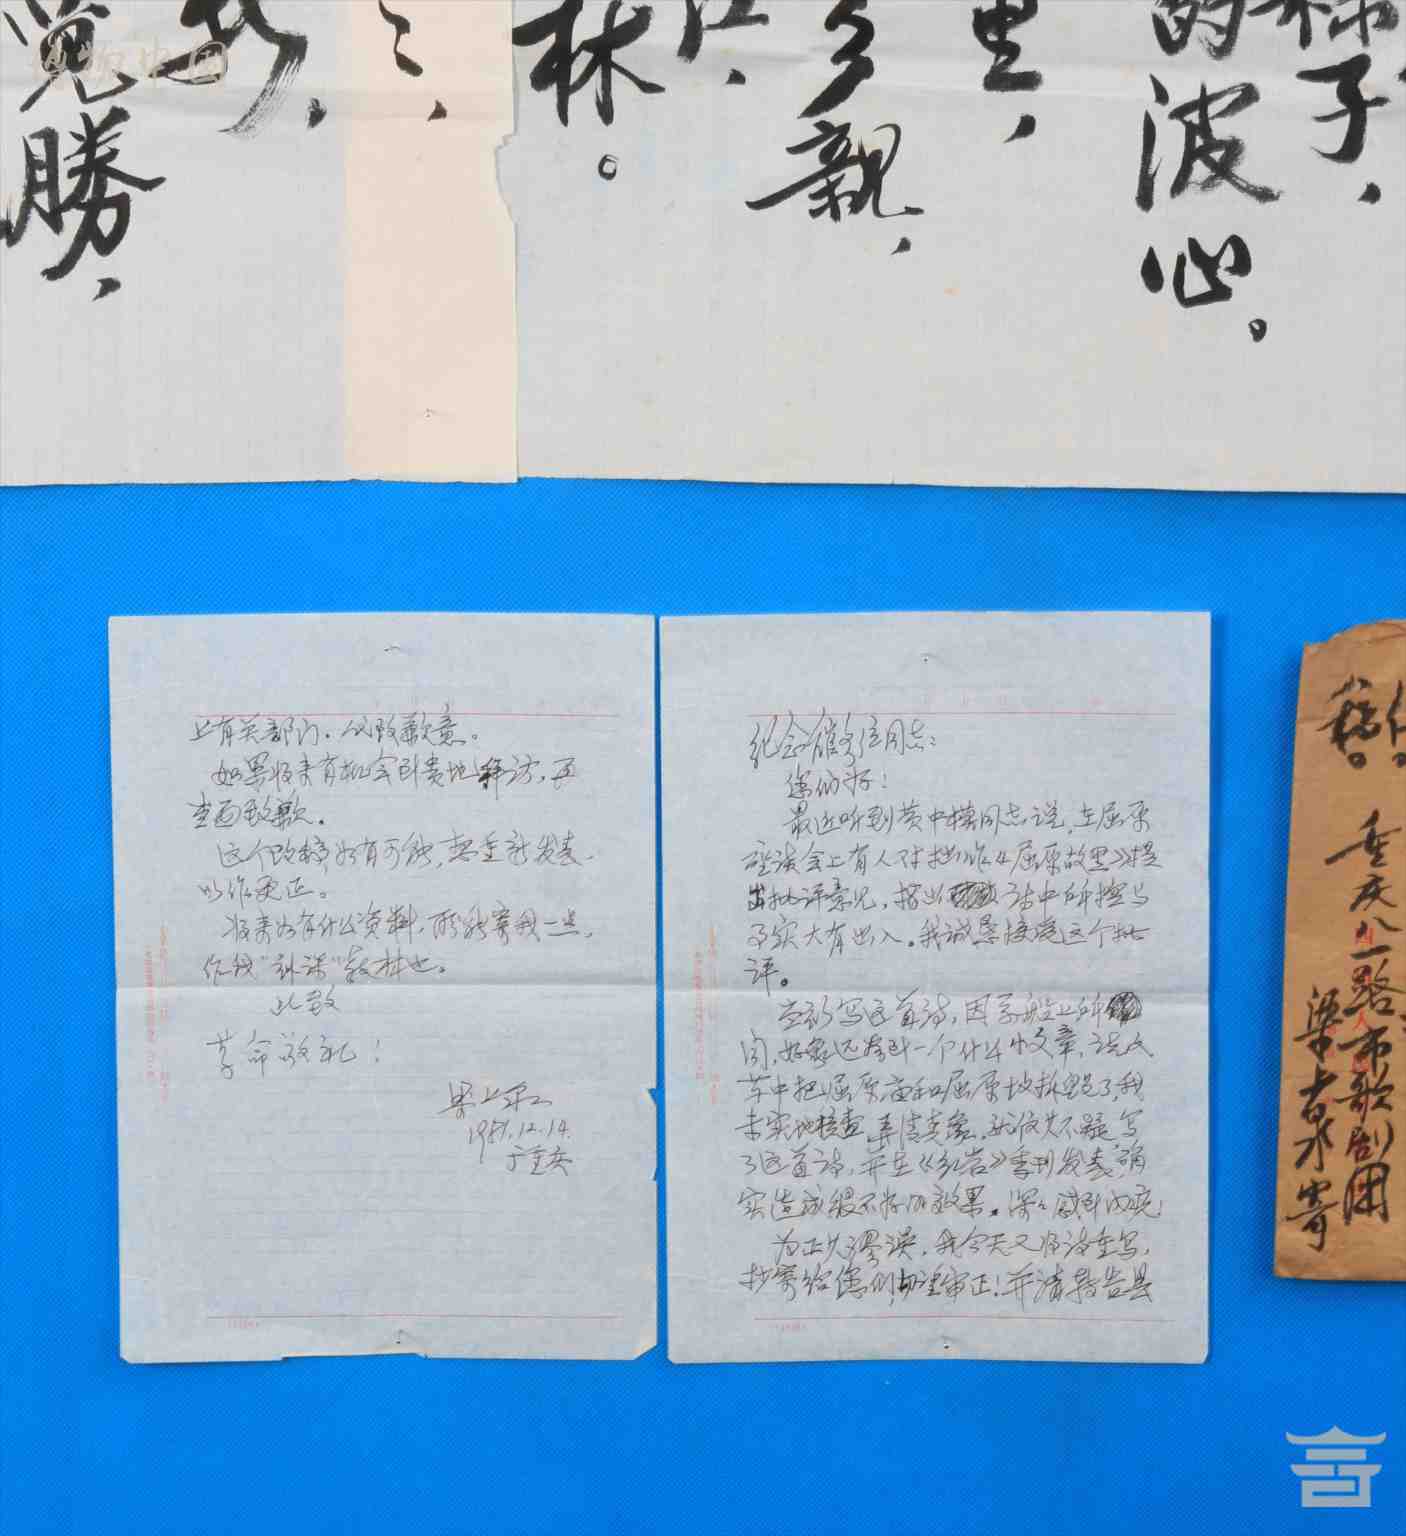 博物中国
种子，
的波心。
里，
乡亲，
江，
林。
覚勝，
纪念馆各位同志：
你们好！
最近听到黄中模同志说，在屈原
座谈会上有人对拙作《屈原故里》提
出批评意见，指出诗中所描写与
事实大有出入。我诚恳接受这个批
评。
当初写这首诗，因系船上所
闻，好象还看到一个什么小文章，说文
革中把屈原庙和屈原坟拆毁了，我
未实地核查，弄清真象，就信其不疑，写
了这首诗，并在《红岩》季刊发表，确
实造成很不好的效果。深深感到内疚；
为正其谬误，我今天又将诗重写，
抄寄给你们，切望审正！并请转告县
上有关部门，以致歉意。
如果将来有机会到贵地拜访，再
当面致歉。
这个改稿，如有可能，想重新发表，
以作更正。
将来如有什么资料，盼能寄我一些，
作我“补课”教材也。
此致
革命敬礼！
梁上泉
1981.12.14.
于重庆
稿。
重庆八一路市歌剧团
梁上泉寄